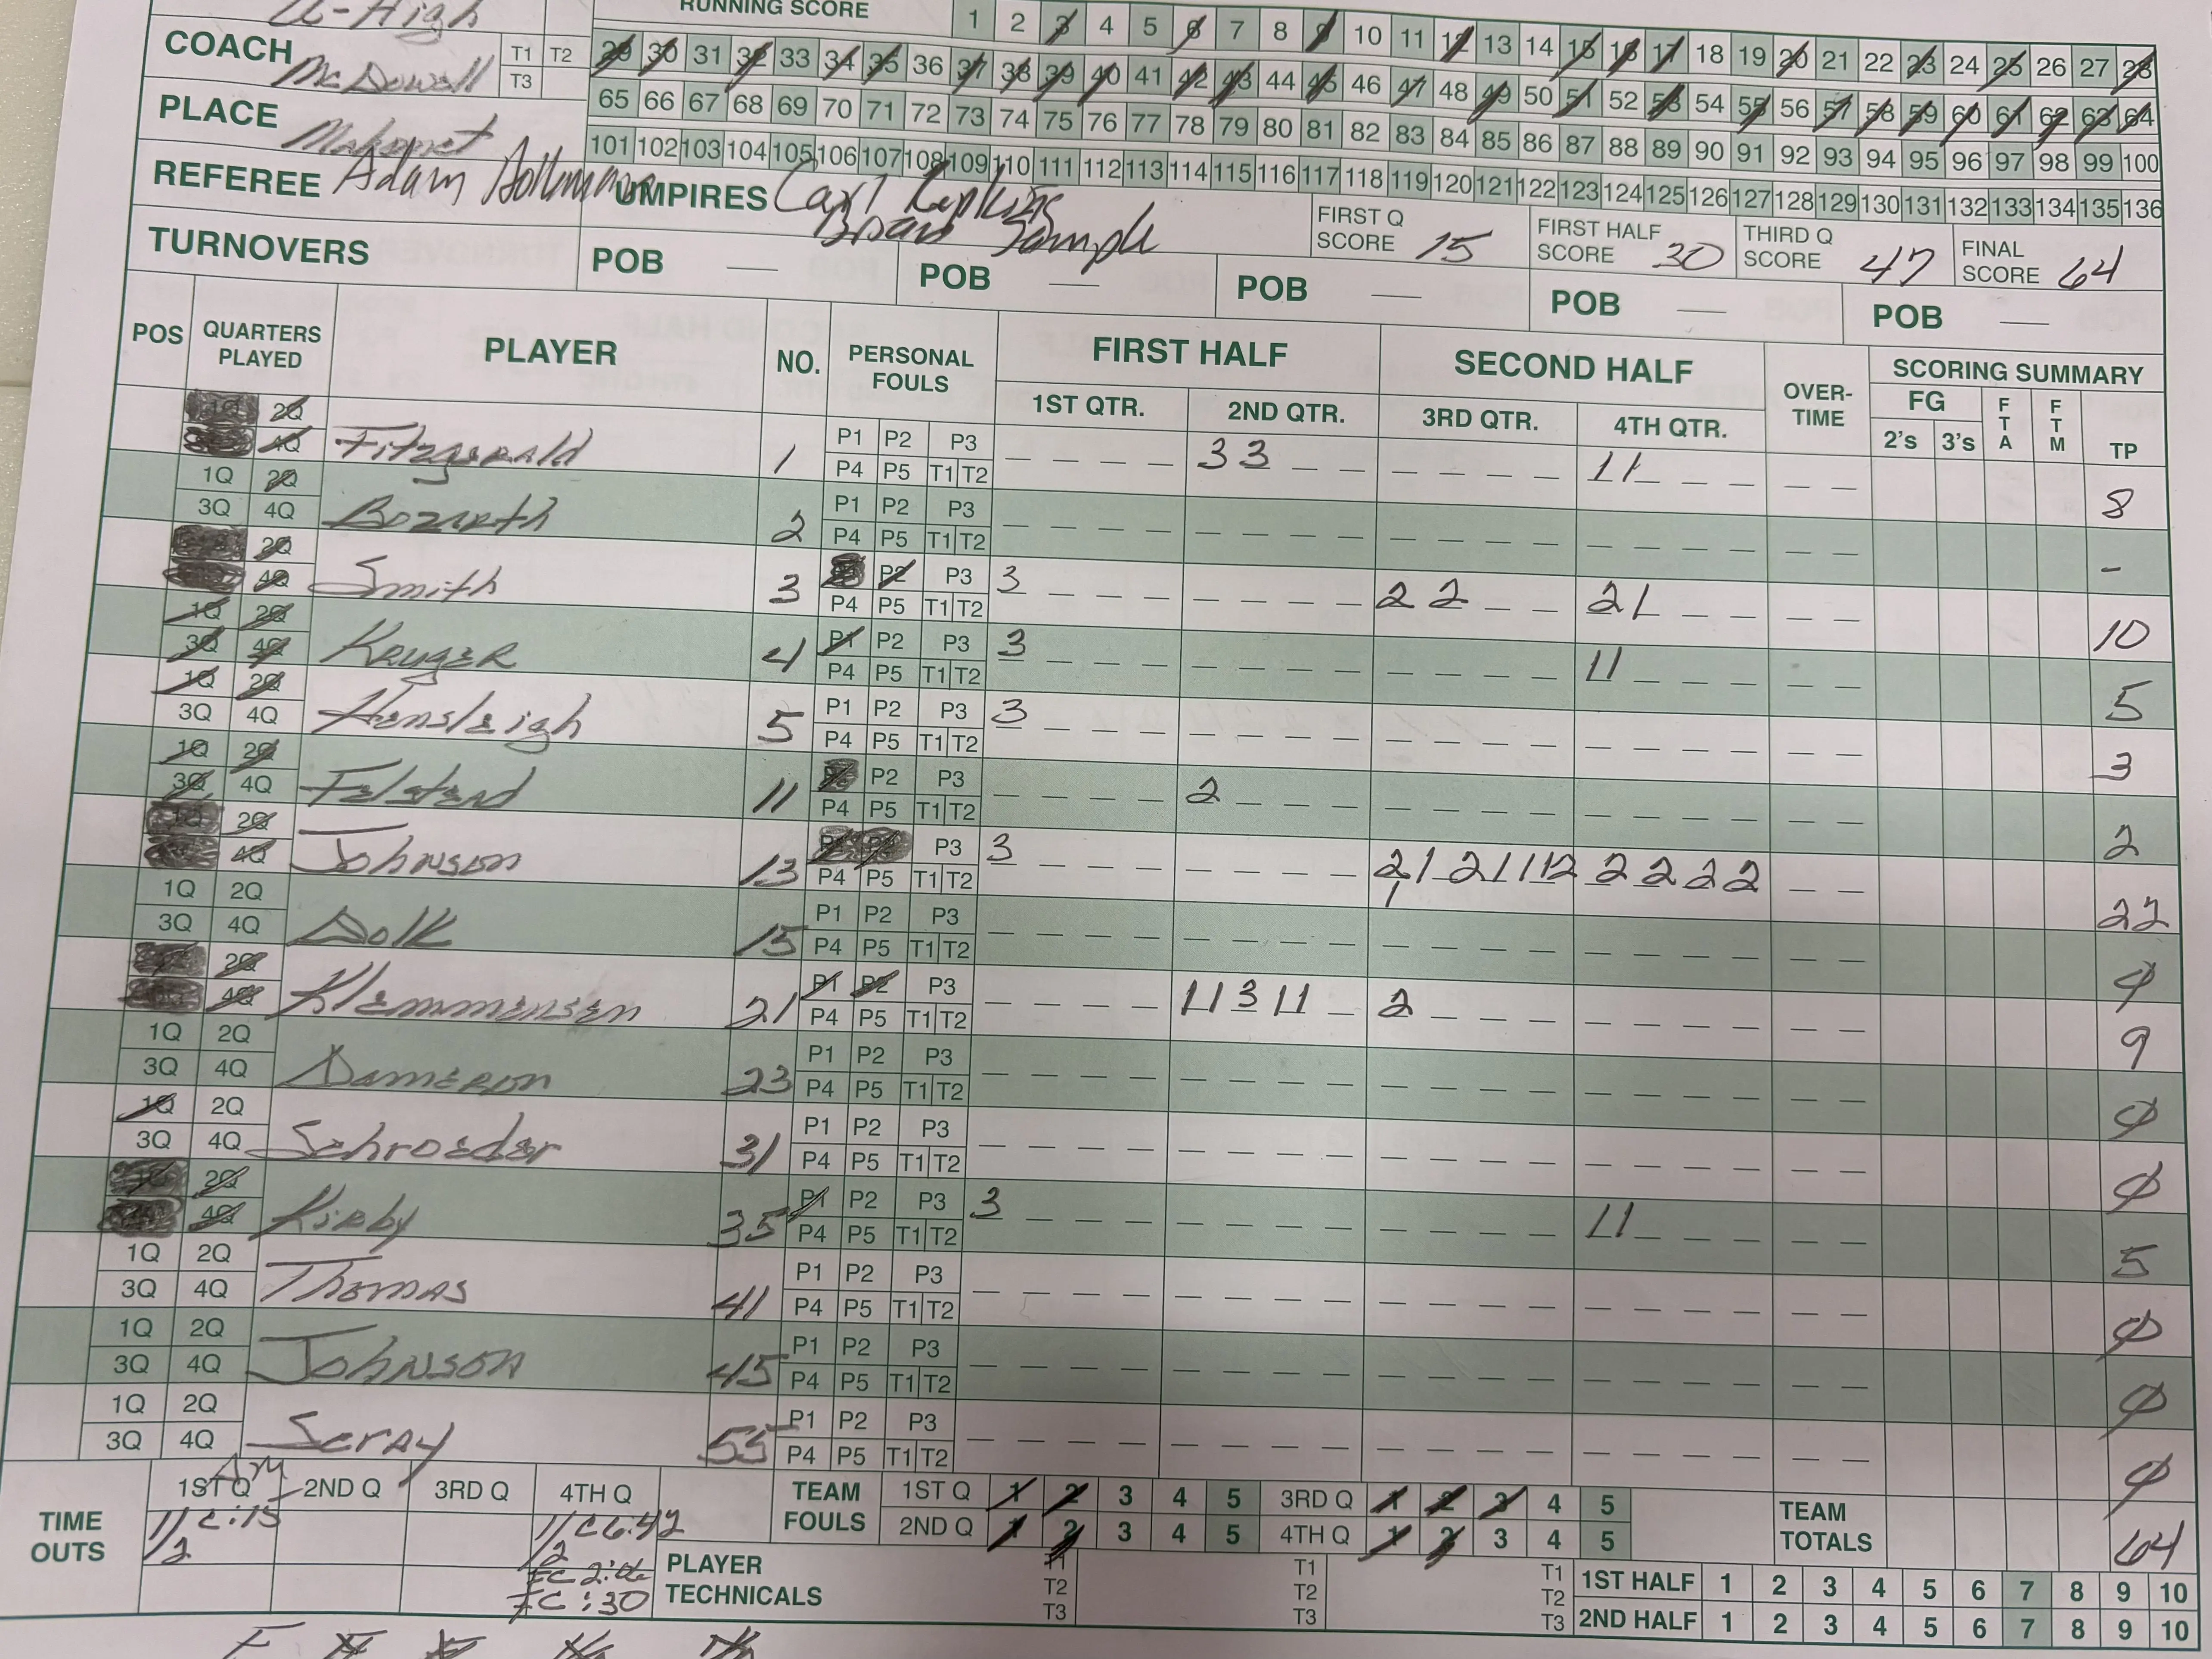 U-High
RUNNING SCORE 1 2 3 4 5 6 7 8 9 10 11 12 13 14 15 16 17 18 19 20 21 22 23 24 25 26 27 28
COACH McDowell T1 T2 T3
29 30 31 32 33 34 35 36 37 38 39 40 41 42 43 44 45 46 47 48 49 50 51 52 53 54 55 56 57 58 59 60 61 62 63 64
PLACE Mahomet
65 66 67 68 69 70 71 72 73 74 75 76 77 78 79 80 81 82 83 84 85 86 87 88 89 90 91 92 93 94 95 96 97 98 99 100
101 102 103 104 105 106 107 108 109 110 111 112 113 114 115 116 117 118 119 120 121 122 123 124 125 126 127 128 129 130 131 132 133 134 135 136
REFEREE Adam UMPIRES Carl
Sample
FIRST Q SCORE 15 FIRST HALF SCORE 30 THIRD Q SCORE 47 FINAL SCORE 64
TURNOVERS POB — POB — POB — POB — POB —
POS QUARTERS PLAYED PLAYER NO. PERSONAL FOULS FIRST HALF SECOND HALF OVER-TIME SCORING SUMMARY
1ST QTR. 2ND QTR. 3RD QTR. 4TH QTR. FG 2's 3's FTA FTM TP
2Q 4Q Fitzgerald 1 P1 P2 P3 P4 P5 T1 T2 3 3 1 1 8
1Q 2Q 3Q 4Q Bozarth 2 P1 P2 P3 P4 P5 T1 T2 -
2Q 4Q Smith 3 P2 P3 P4 P5 T1 T2 3 2 2 2 1 10
1Q 2Q 3Q 4Q Kruger 4 P1 P2 P3 P4 P5 T1 T2 3 1 1 5
1Q 2Q 3Q 4Q Hensleigh 5 P1 P2 P3 P4 P5 T1 T2 3 3
1Q 2Q 3Q 4Q Felstead 11 P2 P3 P4 P5 T1 T2 2 2
2Q 4Q Johnson 13 P3 P4 P5 T1 T2 3 2 1 2 1 1 1 2 1 2 2 2 2 22
1Q 2Q 3Q 4Q Dolk 15 P1 P2 P3 P4 P5 T1 T2 φ
2Q 4Q Klemmensen 21 P1 P2 P3 P4 P5 T1 T2 1 1 3 1 1 2 9
1Q 2Q 3Q 4Q Dameron 23 P1 P2 P3 P4 P5 T1 T2 φ
1Q 2Q 3Q 4Q Schroeder 31 P1 P2 P3 P4 P5 T1 T2 φ
2Q 4Q Kirby 35 P1 P2 P3 P4 P5 T1 T2 3 1 1 5
1Q 2Q 3Q 4Q Thomas 41 P1 P2 P3 P4 P5 T1 T2 φ
1Q 2Q 3Q 4Q Johnson 45 P1 P2 P3 P4 P5 T1 T2 φ
1Q 2Q 3Q 4Q Seray 55 P1 P2 P3 P4 P5 T1 T2 φ
TIME OUTS 1ST Q 2ND Q 3RD Q 4TH Q
TEAM FOULS 1ST Q 1 2 3 4 5 3RD Q 1 2 3 4 5
2ND Q 1 2 3 4 5 4TH Q 1 2 3 4 5
TEAM TOTALS 64
:30
PLAYER TECHNICALS T1 T2 T3 T1 T2 T3 T1 T2 T3
1ST HALF 1 2 3 4 5 6 7 8 9 10
2ND HALF 1 2 3 4 5 6 7 8 9 10